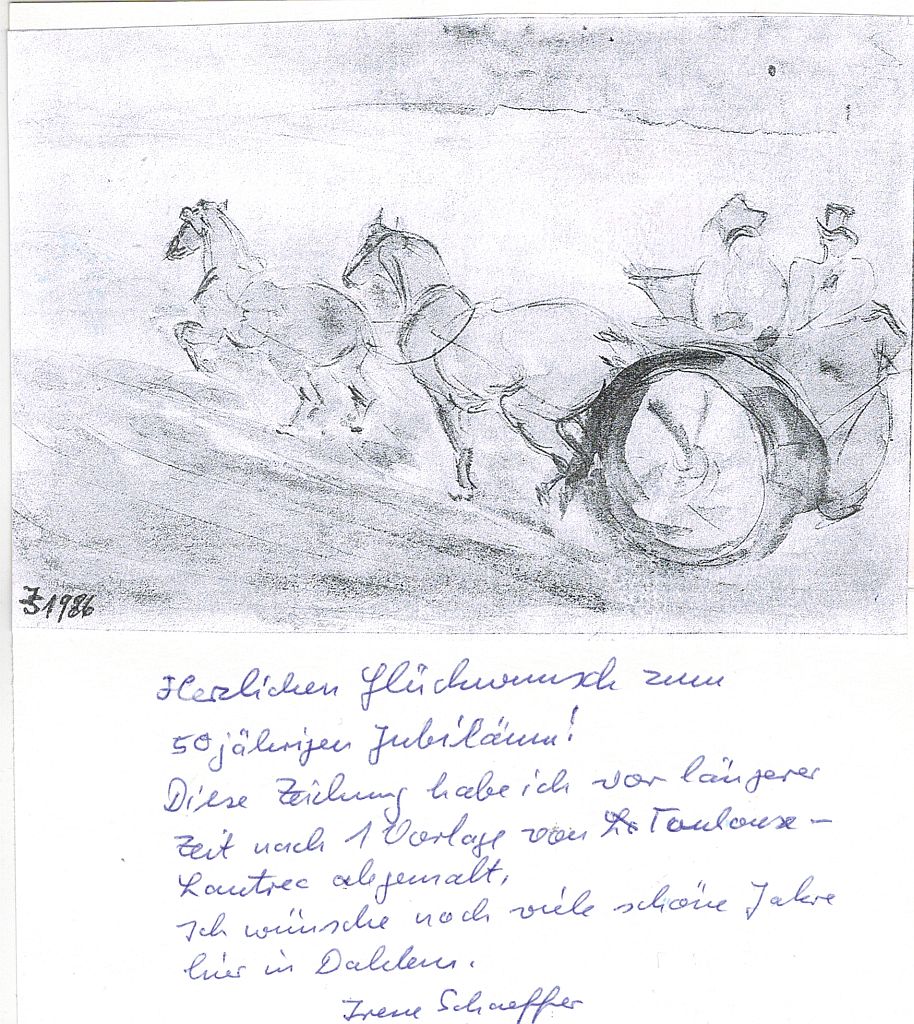 JS 1986
Herzlichen Glückwunsch zum
50 jährigen Jubiläum!
Diese Zeichnung habe ich vor längerer
Zeit nach 1 Vorlage von Toulouse-
Lautrec abgemalt,
ich wünsche noch viele schöne Jahre
hier in Dahlem.
Irene Schaeffer